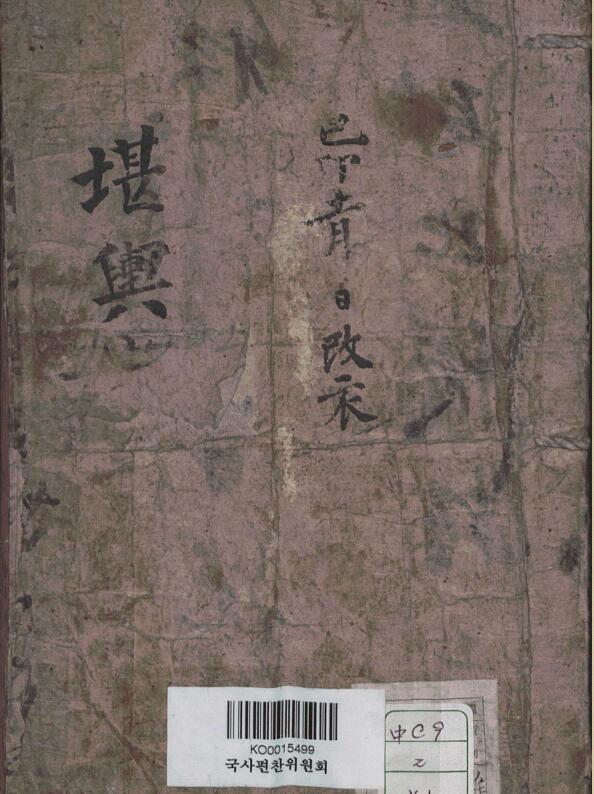 己卯 日改衣
堪輿
KO0015499
국사편찬위원회
中C9
2